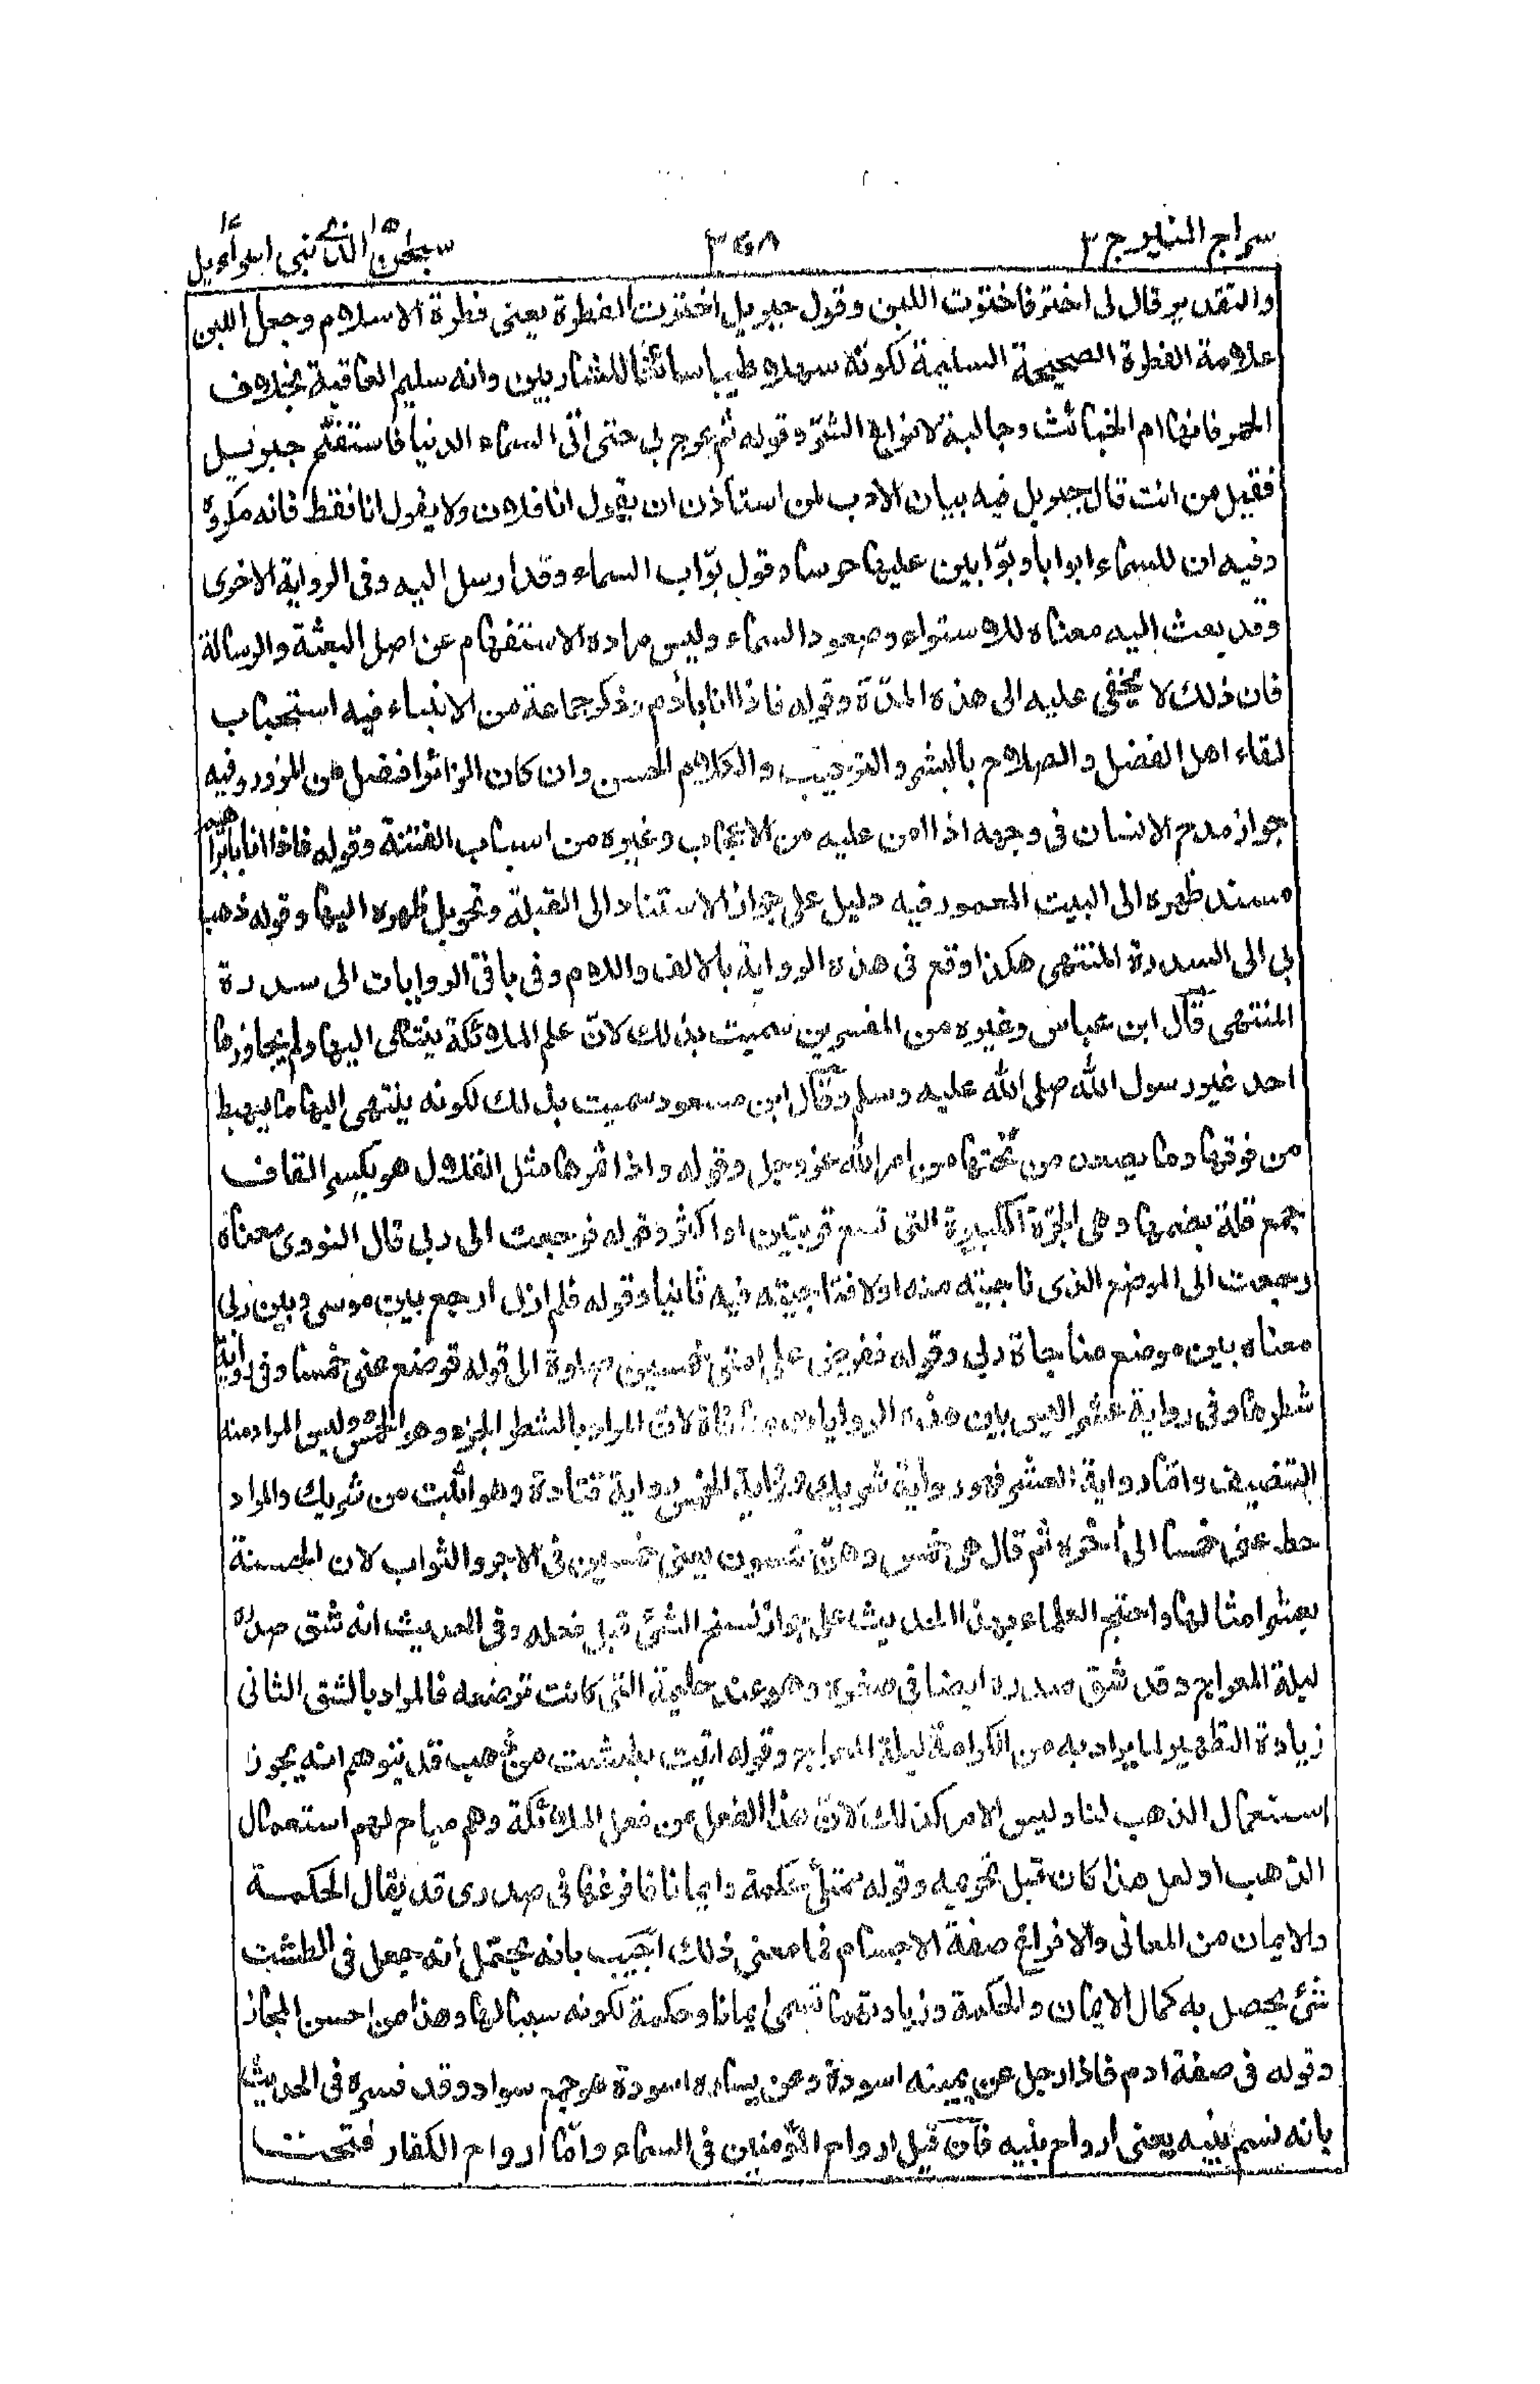 سراج المنير ج ٣
٣٥٨
سبحٰن الذی بنی اسرآءیل
والتقدير قال لى اختر فاخترت اللبن وقول جبريل اخترت الفطرة يعنى فطرة الاسلام وجعل اللبن
علامة الفطرة الصحيحة السليمة لكونه سهلا طيبا سائغا للشاربين وانه سليم العاقبة بخلاف
الخمر فانها ام الخبائث وجالبة لانواع الشرّ وقوله ثم عرج بى حتى اتى السماء الدنيا فاستفتح جبرئيل
فقيل من انت قال جبريل فيه بيان الادب لمن استأذن ان يقول انا فلان ولا يقول انا فقط فانه مكروه
وفيه ان للسماء ابوابا وبوّابين عليها حرسا وقول بوّاب السماء وقد ارسل اليه وفى الرواية الاخرى
وقد بعث اليه معناه للاستواء وصعود السماء وليس مراده الاستفهام عن اصل البعثة والرسالة
فان ذلك لا يخفى عليه الى هذه المدّة وقوله فاذا انا بآدم وذكر جماعة من الانبياء فيه استحباب
لقاء اهل الفضل والصلاح بالبشر والترحيب والكلام الحسن وان كان الزائر افضل من المزور وفيه
جواز مدح الانسان فى وجهه اذا امن عليه من الاعجاب وغيره من اسباب الفتنة وقوله فاذا انا بابراهيم
مسند ظهره الى البيت المعمور فيه دليل على جواز الاستناد الى القبلة وتحويل ظهره اليها وقوله ذهب
بى الى السدرة المنتهى هكذا وقع فى هذه الرواية بالالف واللام وفى باقى الروايات الى سدرة
المنتهى قال ابن عباس وغيره من المفسرين سميت بذلك لانّ علم الملائكة ينتهى اليها ولم يتجاوزها
احد غير رسول الله صلى الله عليه وسلم وقال ابن مسعود سميت بذلك لكونه ينتهى اليها ما يهبط
من فوقها وما يصعد من تحتها من امر الله عزوجل وقوله واذا ثمرها مثل القلال هو بكسر القاف
جمع قلة بضمها وهى الجرّة الكبيرة التى تسع قربتين او اكثر وقوله فرجعت الى ربى قال النووى معناه
رجعت الى الموضع الذى ناجيته منه اولا فناجيته فيه ثانيا وقوله فلم ازل ارجع بين موسى وبين ربى
معناه بين موضع مناجاة ربى وقوله ففرض على امتى خمسين صلوة الى قوله فوضع عنى خمسا وفى رواية
شطرها وفى رواية عشرا ليس بين هذه الروايات منافاة لانّ المراد بالشطر الجزء وهو الخمس وليس المراد منه
التنصيف وامّا رواية العشر فهو رواية شريك ورواية الخمس رواية قتادة وهو اثبت من شريك والمراد
حط عنى خمسا الى آخره ثم قال هى خمس وهنّ خمسون يعنى خمسين فى الاجر والثواب لان الحسنة
بعشر امثالها واحتج العلماء بهذا الحديث على جواز نسخ الشئ قبل فعله وفى الحديث انه شق صدره
ليلة المعراج وقد شق صدره ايضا فى صغره وهو عند حليمة التى كانت ترضعه فالمراد بالشق الثانى
زيادة التطهير لما يراد به من الكرامة ليلة المعراج وقوله اتيت بطشت من ذهب قد يتوهم انه يجوز
استعمال الذهب لنا وليس الامر كذلك لانّ هذا الفعل من فعل الملائكة وهم مباح لهم استعمال
الذهب او لعل هذا كان قبل تحريمه وقوله ممتلئ حكمة وايمانا فافرغها فى صدرى قد يقال الحكمة
والايمان من المعانى والافراغ صفة الاجسام فما معنى ذلك اجيب بانه يحتمل أنه جعل فى الطشت
شئ يحصل به كمال الايمان والحكمة وزيادتهما تسمى ايمانا وحكمة لكونه سببا لها وهذا من احسن المجاز
وقوله فى صفة ادم فاذا رجل عن يمينه اسودة وعن يساره اسودة هو جمع سواد وقد فسره فى الحديث
بانه نسم بنيه يعنى ارواح بنيه فان قيل ارواح المؤمنين فى السماء وامّا ارواح الكفار فتحت